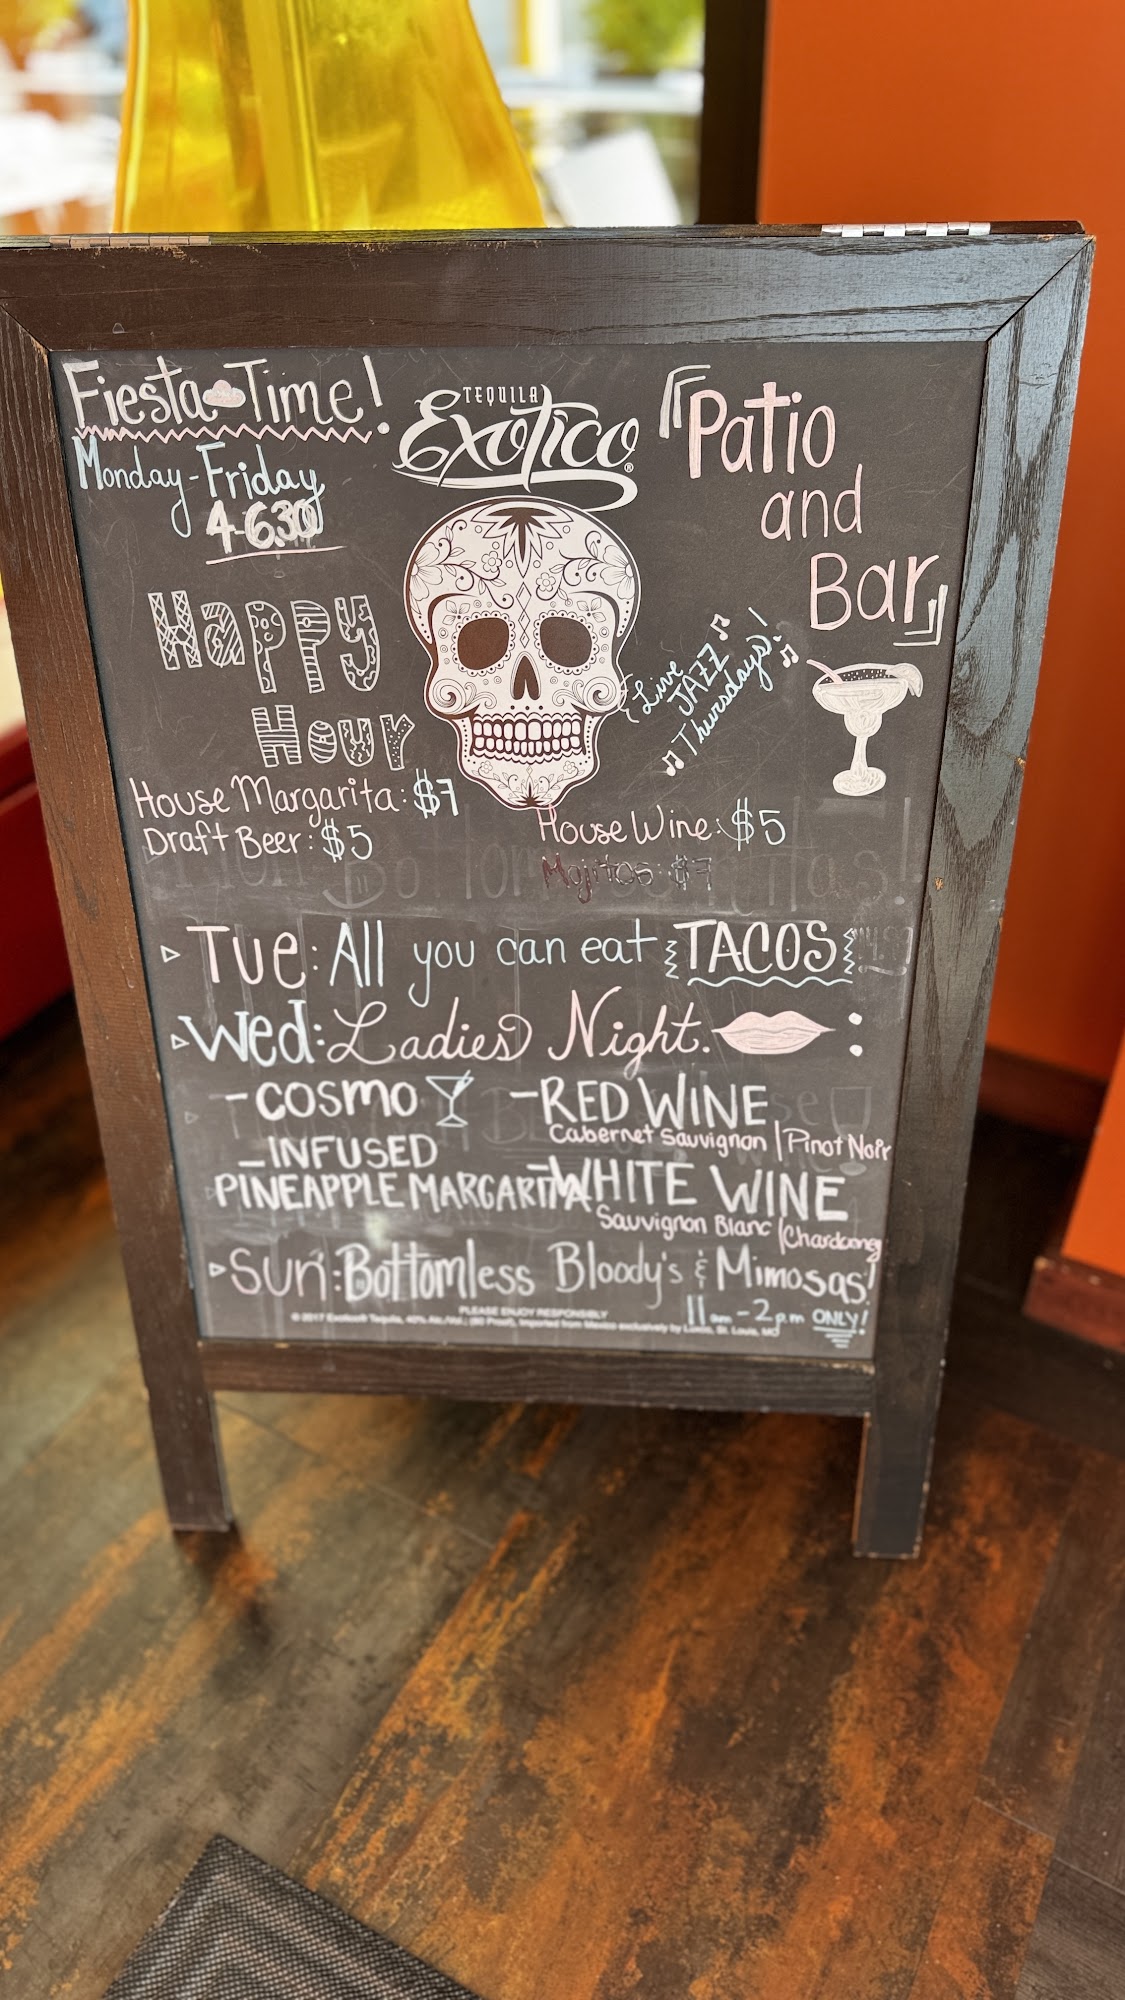 Fiesta Time!
Monday-Friday
4-6:30
TEQUILA
Exotico®
Patio
and
Bar
Happy
Hour
Live
JAZZ
Thursdays!
House Margarita: $7
Draft Beer: $5
House Wine: $5
Mojitos: $7
Tue: All you can eat TACOS
Wed: Ladies Night. :
-COSMO
-INFUSED
PINEAPPLE MARGARITA
-RED WINE
Cabernet Sauvignon | Pinot Noir
-WHITE WINE
Sauvignon Blanc | Chardonney
Sun: Bottomless Bloody's & Mimosas!
11am-2pm ONLY!
PLEASE ENJOY RESPONSIBLY
© 2017 Exotico® Tequila, 40% Alc./Vol. (80 Proof), Imported from Mexico exclusively by Luxco, St. Louis, MO